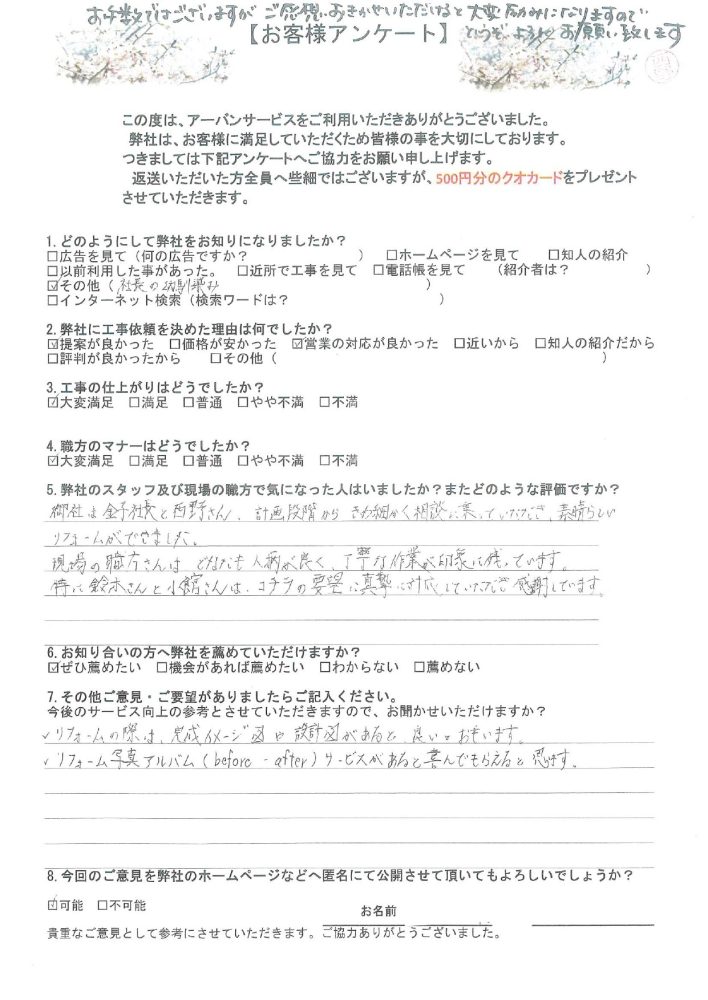 お手数ではございますが ご感想おきかせいただけると大変励みになりますので
【お客様アンケート】 どうぞ よろしくお願い致します
この度は、アーバンサービスをご利用いただきありがとうございました。
弊社は、お客様に満足していただくため皆様の事を大切にしております。
つきましては下記アンケートへご協力をお願い申し上げます。
返送いただいた方全員へ些細ではございますが、500円分のクオカードをプレゼント
させていただきます。
1.どのようにして弊社をお知りになりましたか？
□広告を見て（何の広告ですか？ ） □ホームページを見て □知人の紹介
□以前利用した事があった。 □近所で工事を見て □電話帳を見て （紹介者は？ ）
☑その他（社長の幼馴染み ）
□インターネット検索（検索ワードは？ ）
2.弊社に工事依頼を決めた理由は何でしたか？
☑提案が良かった □価格が安かった ☑営業の対応が良かった □近いから □知人の紹介だから
□評判が良かったから □その他（ ）
3.工事の仕上がりはどうでしたか？
☑大変満足 □満足 □普通 □やや不満 □不満
4.職方のマナーはどうでしたか？
☑大変満足 □満足 □普通 □やや不満 □不満
5.弊社のスタッフ及び現場の職方で気になった人はいましたか？またどのような評価ですか？
御社は金子社長と西野さん、計画段階からきめ細かく相談に乗っていただき、素晴らしい
リフォームができました。
現場の職方さんは どなたも人柄が良く、丁寧な作業が印象に残っています。
特に鈴木さんと小館さんは、コチラの要望に真摯に対応していただき感謝しています。
6.お知り合いの方へ弊社を薦めていただけますか？
☑ぜひ薦めたい □機会があれば薦めたい □わからない □薦めない
7.その他ご意見・ご要望がありましたらご記入ください。
今後のサービス向上の参考とさせていただきますので、お聞かせいただけますか？
✓リフォームの際は、完成イメージ図や設計図があると良いとおもいます。
✓リフォーム写真アルバム（before - after）サービスがあると喜んでもらえると思います。
8.今回のご意見を弊社のホームページなどへ匿名にて公開させて頂いてもよろしいでしょうか？
☑可能 □不可能
お名前
貴重なご意見として参考にさせていただきます。ご協力ありがとうございました。